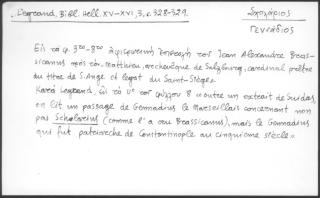 Legrand, Bibl. Hell. XV-XVI, 3, σ. 328-329.
Σχολάριος
Γεννάδιος
Εἰς τὰ φ. 3ʳᵒ-8ʳᵒ ἀφιερωτικὴ ἐπιστολὴ τοῦ Jean Alexandre Brassicanus πρὸς τὸν Matthieu, archevêque de Salzbourg, cardinal prêtre
du titre de S. Ange et légat du Saint-Siège.
Κατὰ Legrand, εἰς τὸ vº τοῦ φύλλου 8 «outre un extrait de Suidas,
on lit un passage de Gennadius le Marseillais concernant non
pas Scholarius (comme l'a cru Brassicanus), mais le Gennadius
qui fut patriarche de Constantinople au cinquième siècle».